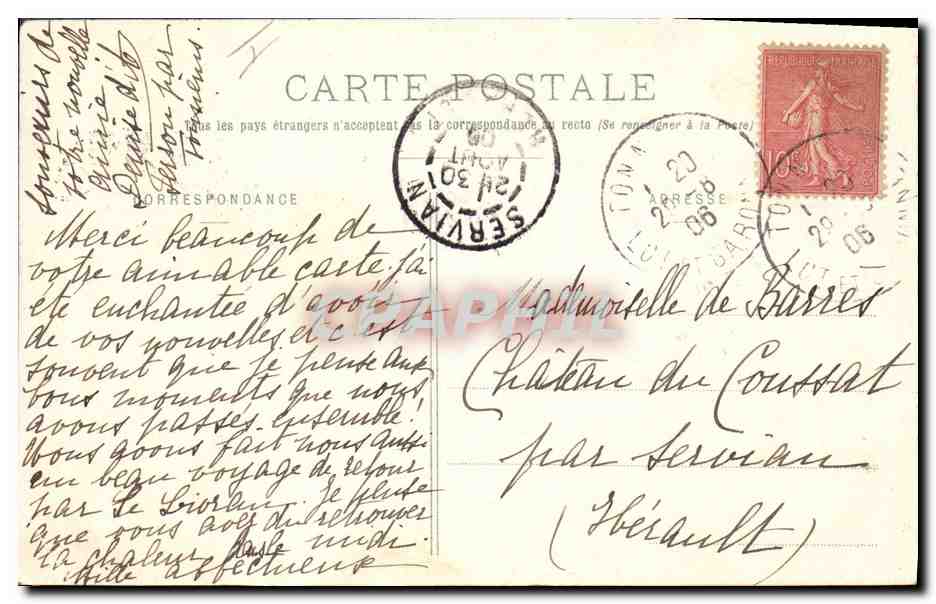 CARTE POSTALE
Tous les pays étrangers n'acceptent pas la correspondance au recto (Se renseigner à la Poste)
CORRESPONDANCE
ADRESSE
Merci beaucoup de
votre aimable carte. j'ai
été enchantée d'avoir
de vos nouvelles et c'est
souvent que je pense aux
bons moments que nous
avons passés ensemble!
Nous avons fait nous aussi
un beau voyage de retour
par Le Lioran. Je pense
que vous avez dû retrouver
la chaleur dans le midi.
Mille affectueux
souvenirs de
votre nouvelle
amie
Denise dito
Mademoiselle de Barrès
Château du Coussat
par Servian
(Hérault)
REPUBLIQUE FRANÇAISE
10c
POSTES
SERVIAN
30
AOUT
06
TON
29
06
LOT ET GARONNE
29
06
CPAPHIL